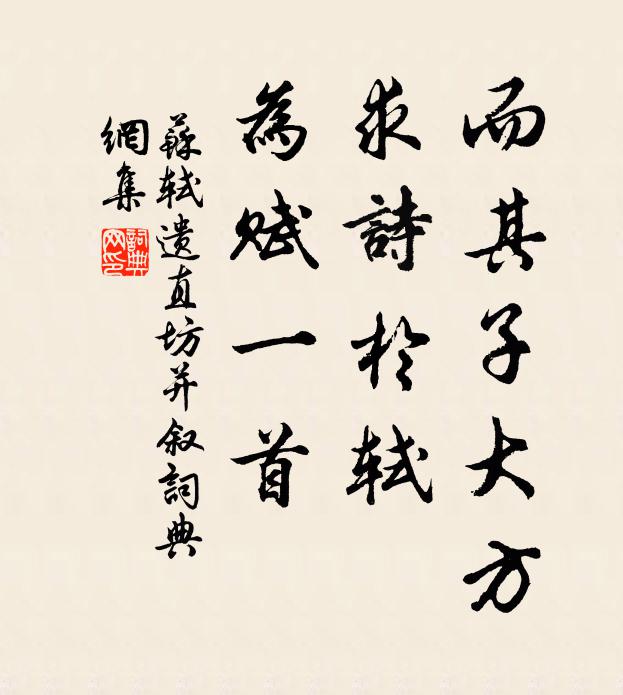 而其子大方
求詩於軾
為賦一首
蘇軾遺直坊并叙詞典
網集
詞典
网印